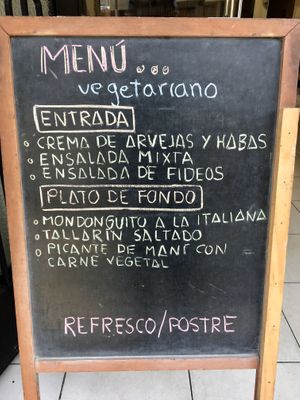 MENÚ...
vegetariano
ENTRADA
• CREMA DE ARVEJAS Y HABAS
• ENSALADA MIXTA
• ENSALADA DE FIDEOS
PLATO DE FONDO
• MONDONGUITO A LA ITALIANA
• TALLARÍN SALTADO
• PICANTE DE MANÍ CON
CARNE VEGETAL
REFRESCO/POSTRE